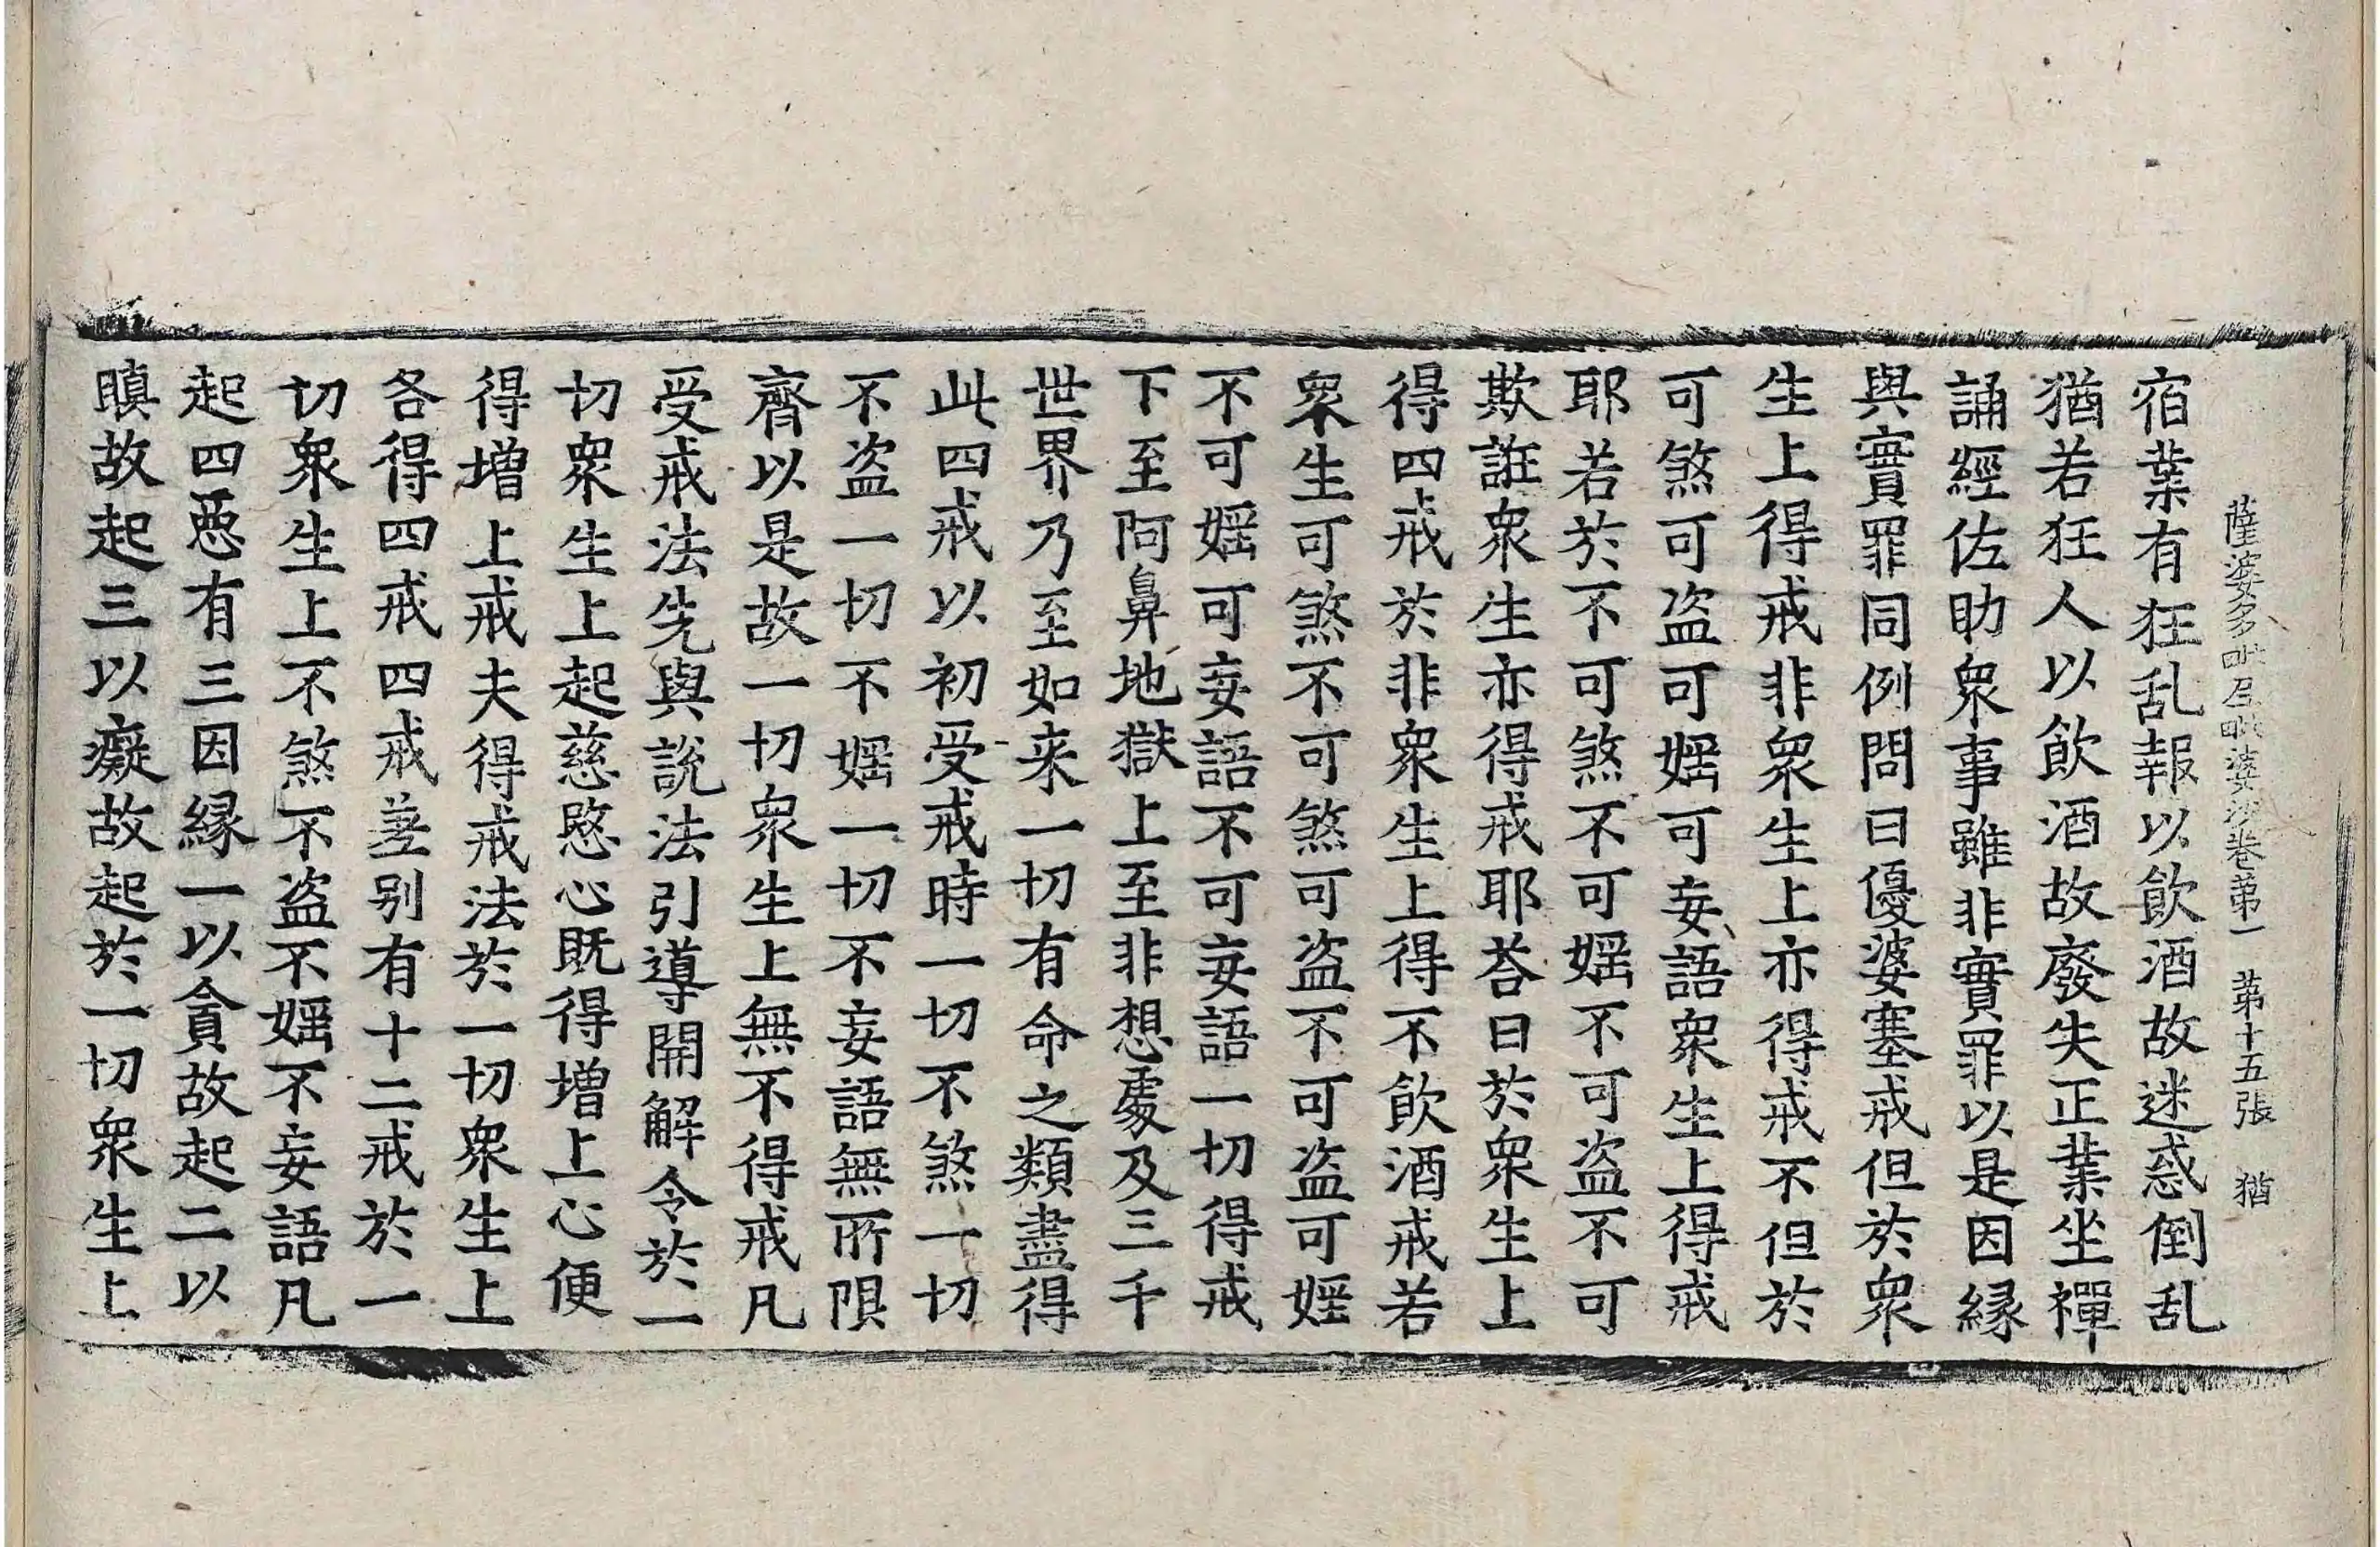 薩婆多毗尼毗婆沙卷第一　第十五張　猶
宿業有狂乱報以飲酒故迷惑倒乱
猶若狂人以飲酒故廢失正業坐禪
誦經佐助衆事雖非實罪以是因緣
與實罪同例問曰優婆塞戒但於衆
生上得戒非衆生上亦得戒不但於
可煞可盗可婬可妄語衆生上得戒
耶若於不可煞不可婬不可盗不可
欺誑衆生亦得戒耶荅曰於衆生上
得四戒於非衆生上得不飲酒戒若
衆生可煞不可煞可盗不可盗可婬
不可婬可妄語不可妄語一切得戒
下至阿鼻地獄上至非想處及三千
世界乃至如来一切有命之類盡得
此四戒以初受戒時一切不煞一切
不盗一切不婬一切不妄語無所限
齊以是故一切衆生上無不得戒凡
受戒法先與說法引導開解令於一
切衆生上起慈愍心既得增上心便
得增上戒夫得戒法於一切衆生上
各得四戒四戒差别有十二戒於一
切衆生上不煞不盗不婬不妄語凡
起四惡有三因緣一以貪故起二以
瞋故起三以癡故起於一切衆生上